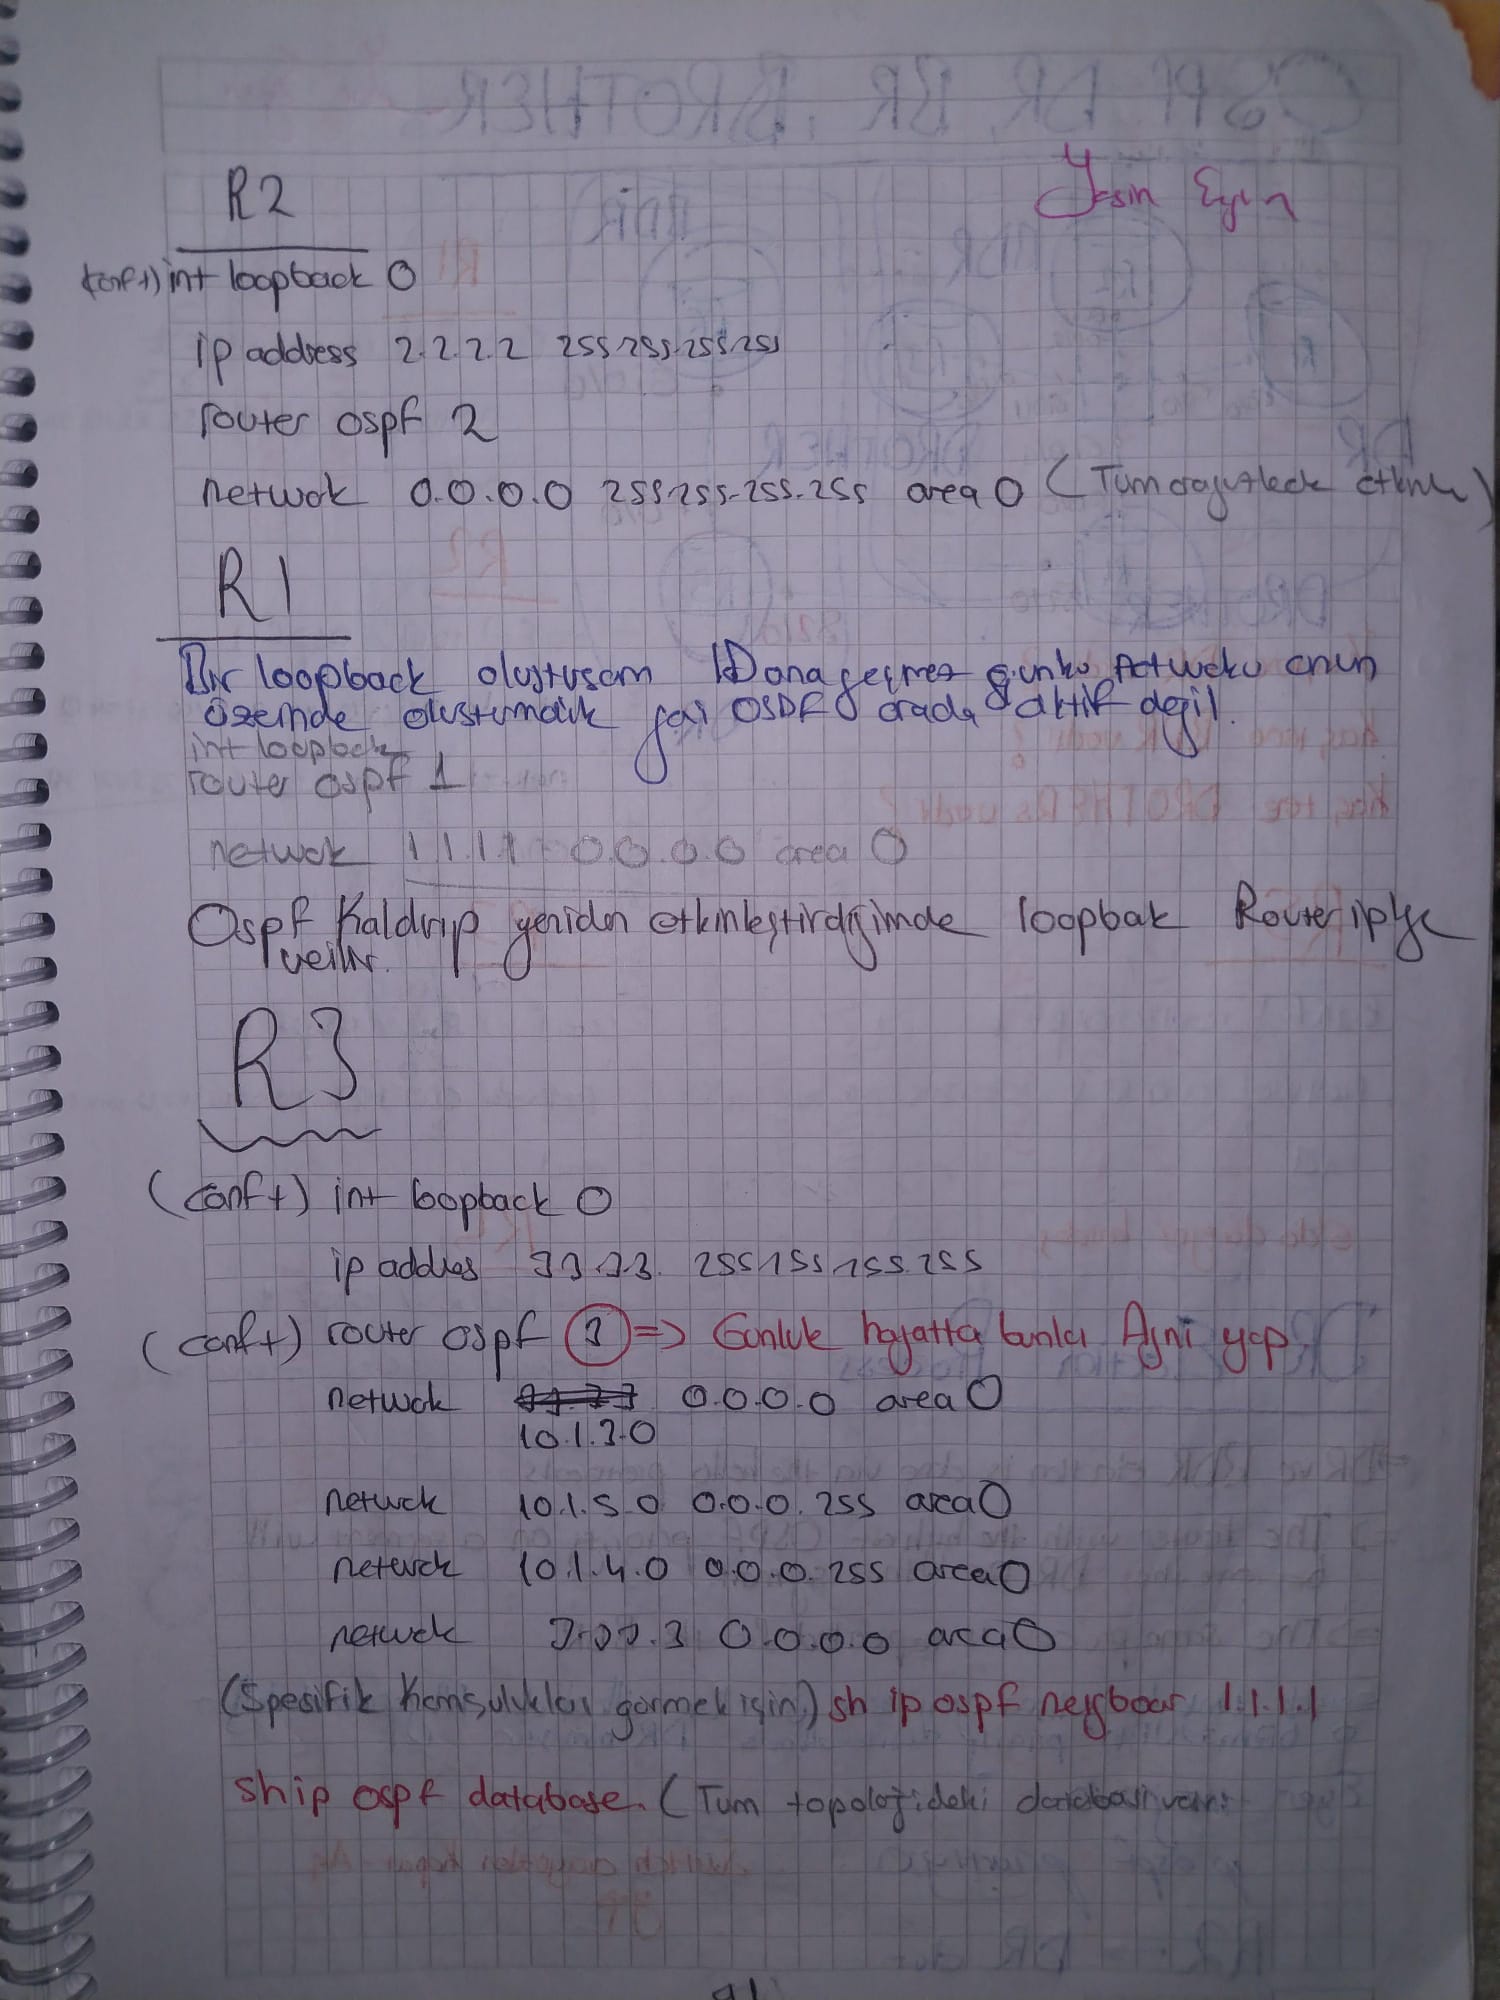 Yasin Eyın
R2
(conf t) int loopback 0
ip address 2.2.2.2 255.255.255.255
router ospf 2
network 0.0.0.0 255.255.255.255 area 0 (Tum etkin)
R1
Bir loopback olustusam ID ona geçmez çunku networku onun
üzerinde olusturmadık yai OSPF orada aktif degil.
int loopback
router ospf 1
network 1.1.1.1 0.0.0.0 area 0
Ospf Kaldırıp yeniden etkinleştirdiğimde loopbak Router ip'ye
verilir.
R3
(conf t) int loopback 0
ip addres 3.3.3.3. 255.255.255.255
(conf t) router ospf 3 => Gunluk hayatta bunları Aynı yap
network 3.3.3.3 0.0.0.0 area 0
10.1.3.0
network 10.1.5.0 0.0.0.255 area 0
network 10.1.4.0 0.0.0.255 area 0
network 3.3.3.3 0.0.0.0 area 0
(Spesifik Komşulukları görmek için) sh ip ospf neigboar 1.1.1.1
sh ip ospf database. (Tum topolojideki databasi verir